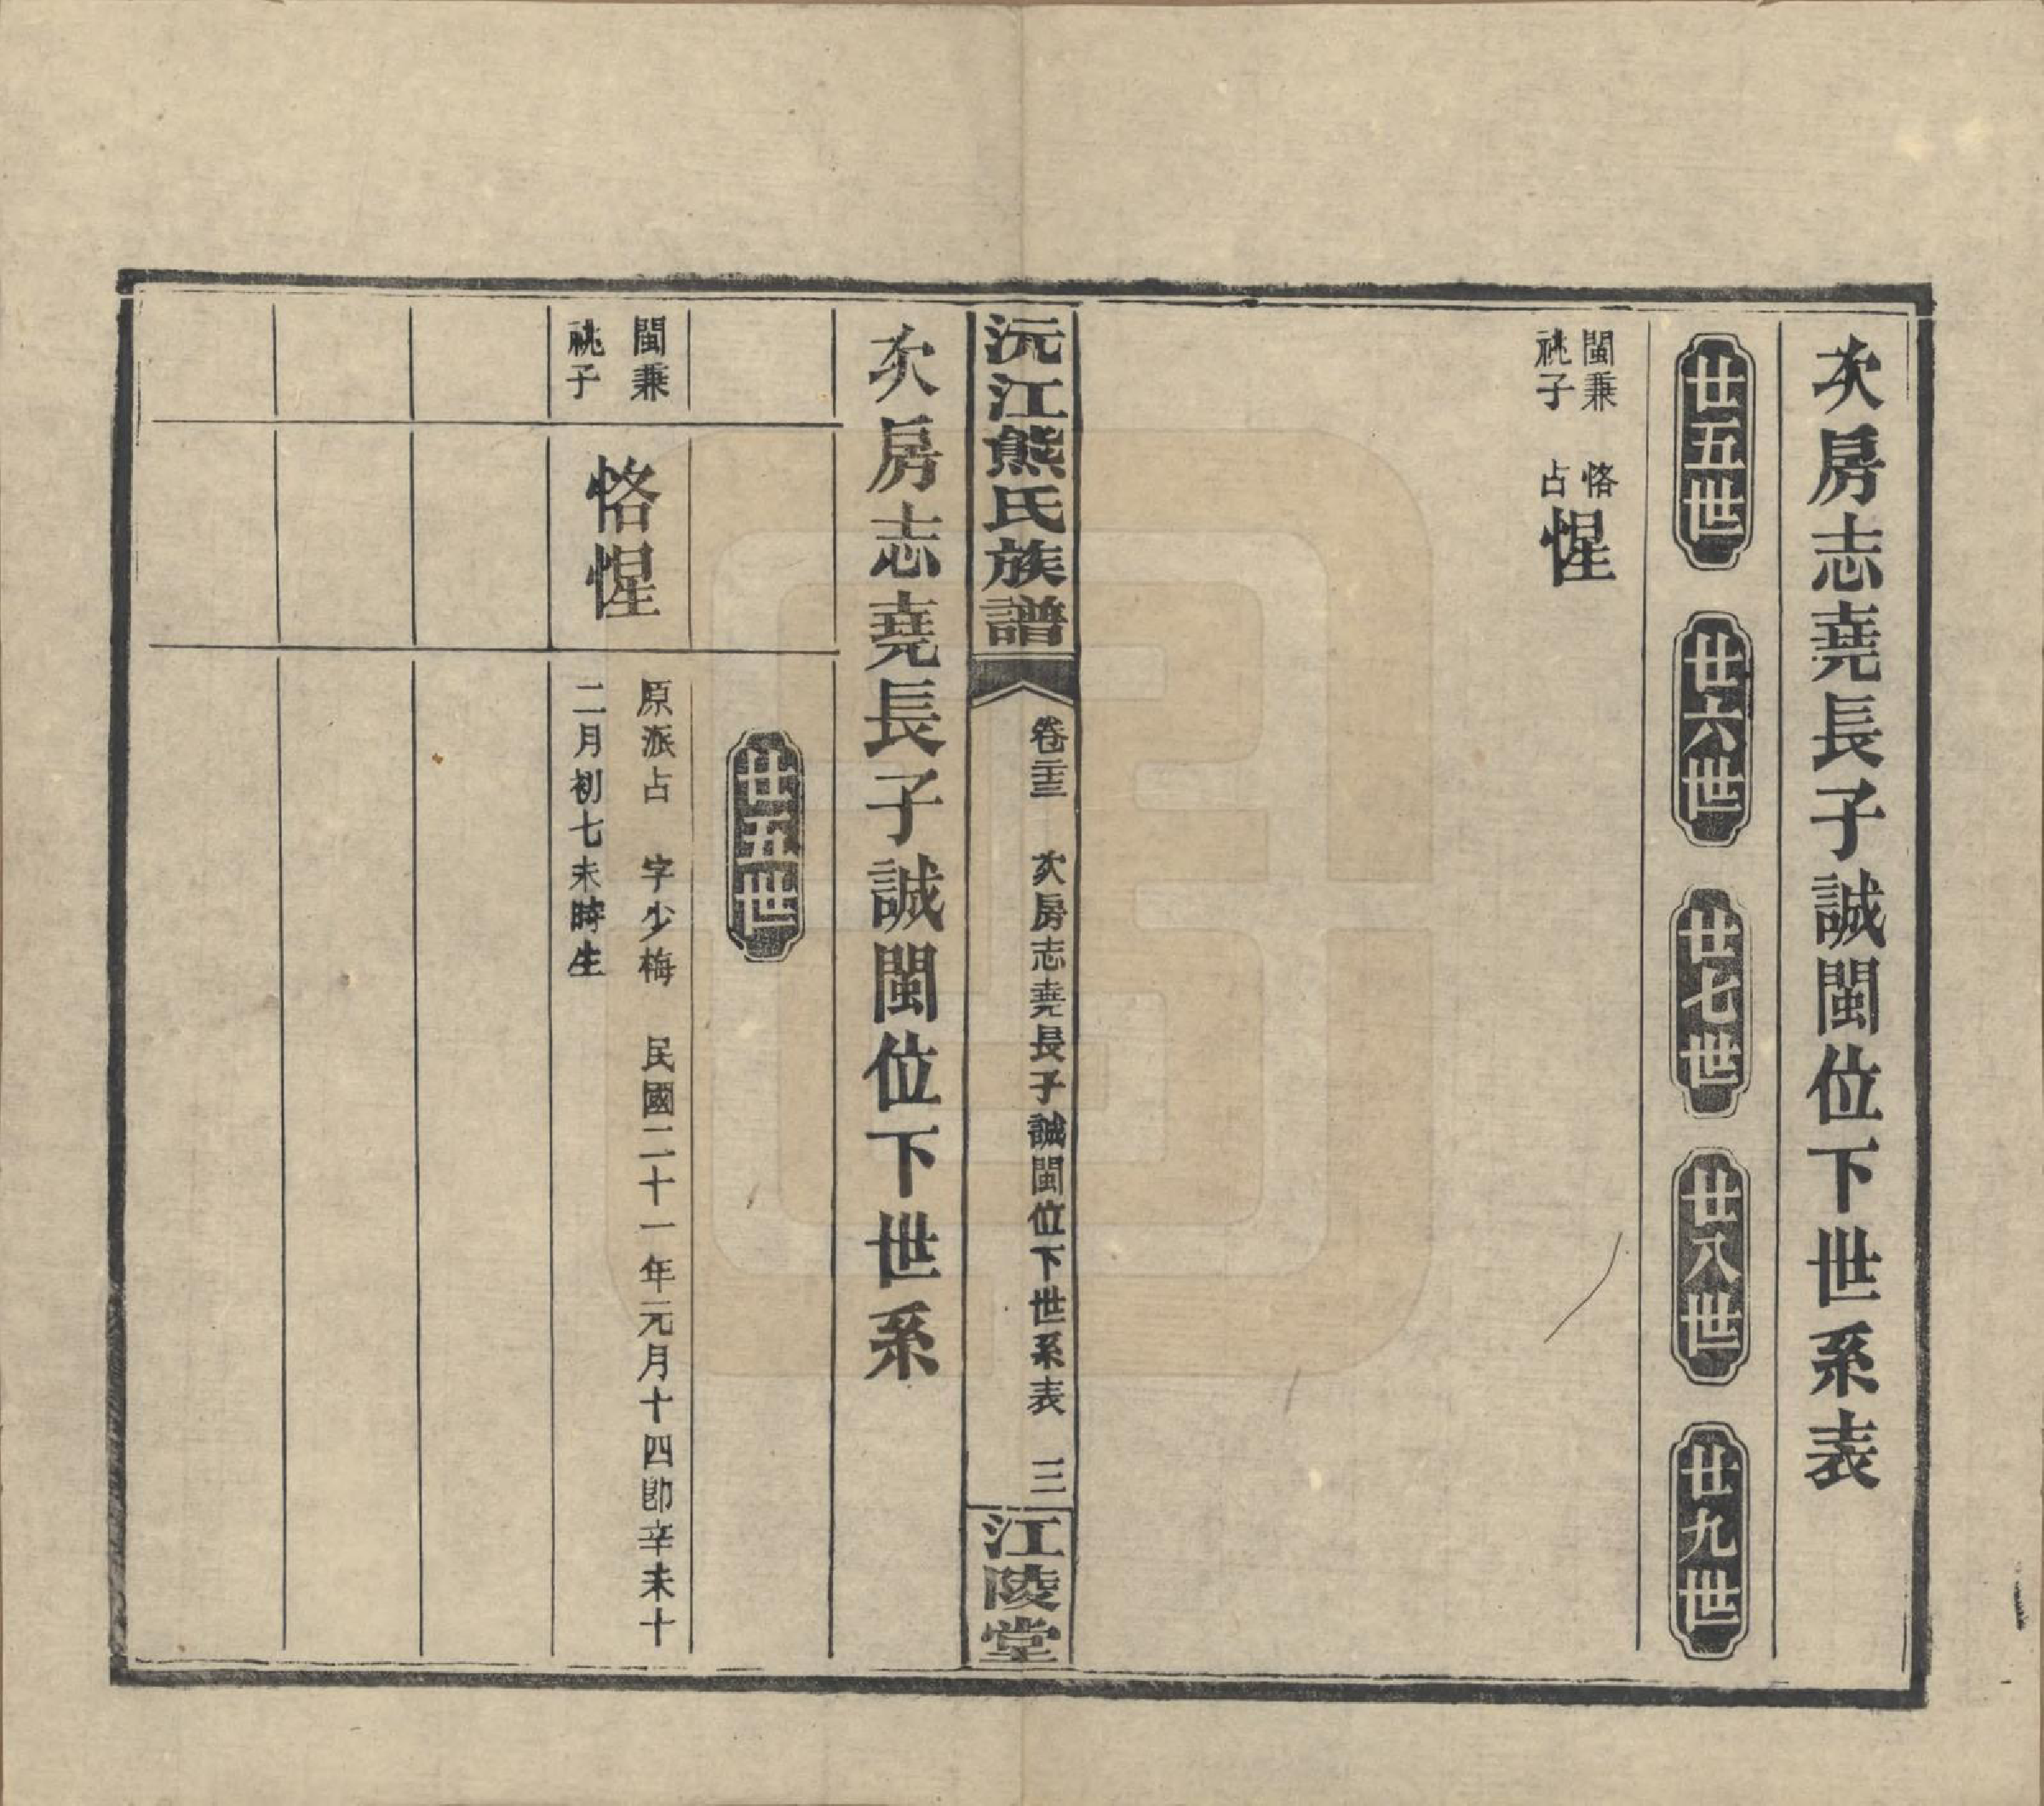 次房志堯長子誠閩位下世系表
廿五世
廿六世
廿七世
廿八世
廿九世
閩兼
祧子
恪
占
惺
沅江熊氏族譜
卷二十三
次房志堯長子誠閩位下世系表
三
江陵堂
次房志堯長子誠閩位下世系
廿五世
閩兼
祧子
恪惺
原派占 字少梅 民國二十一年元月十四卽辛未十
二月初七未時生